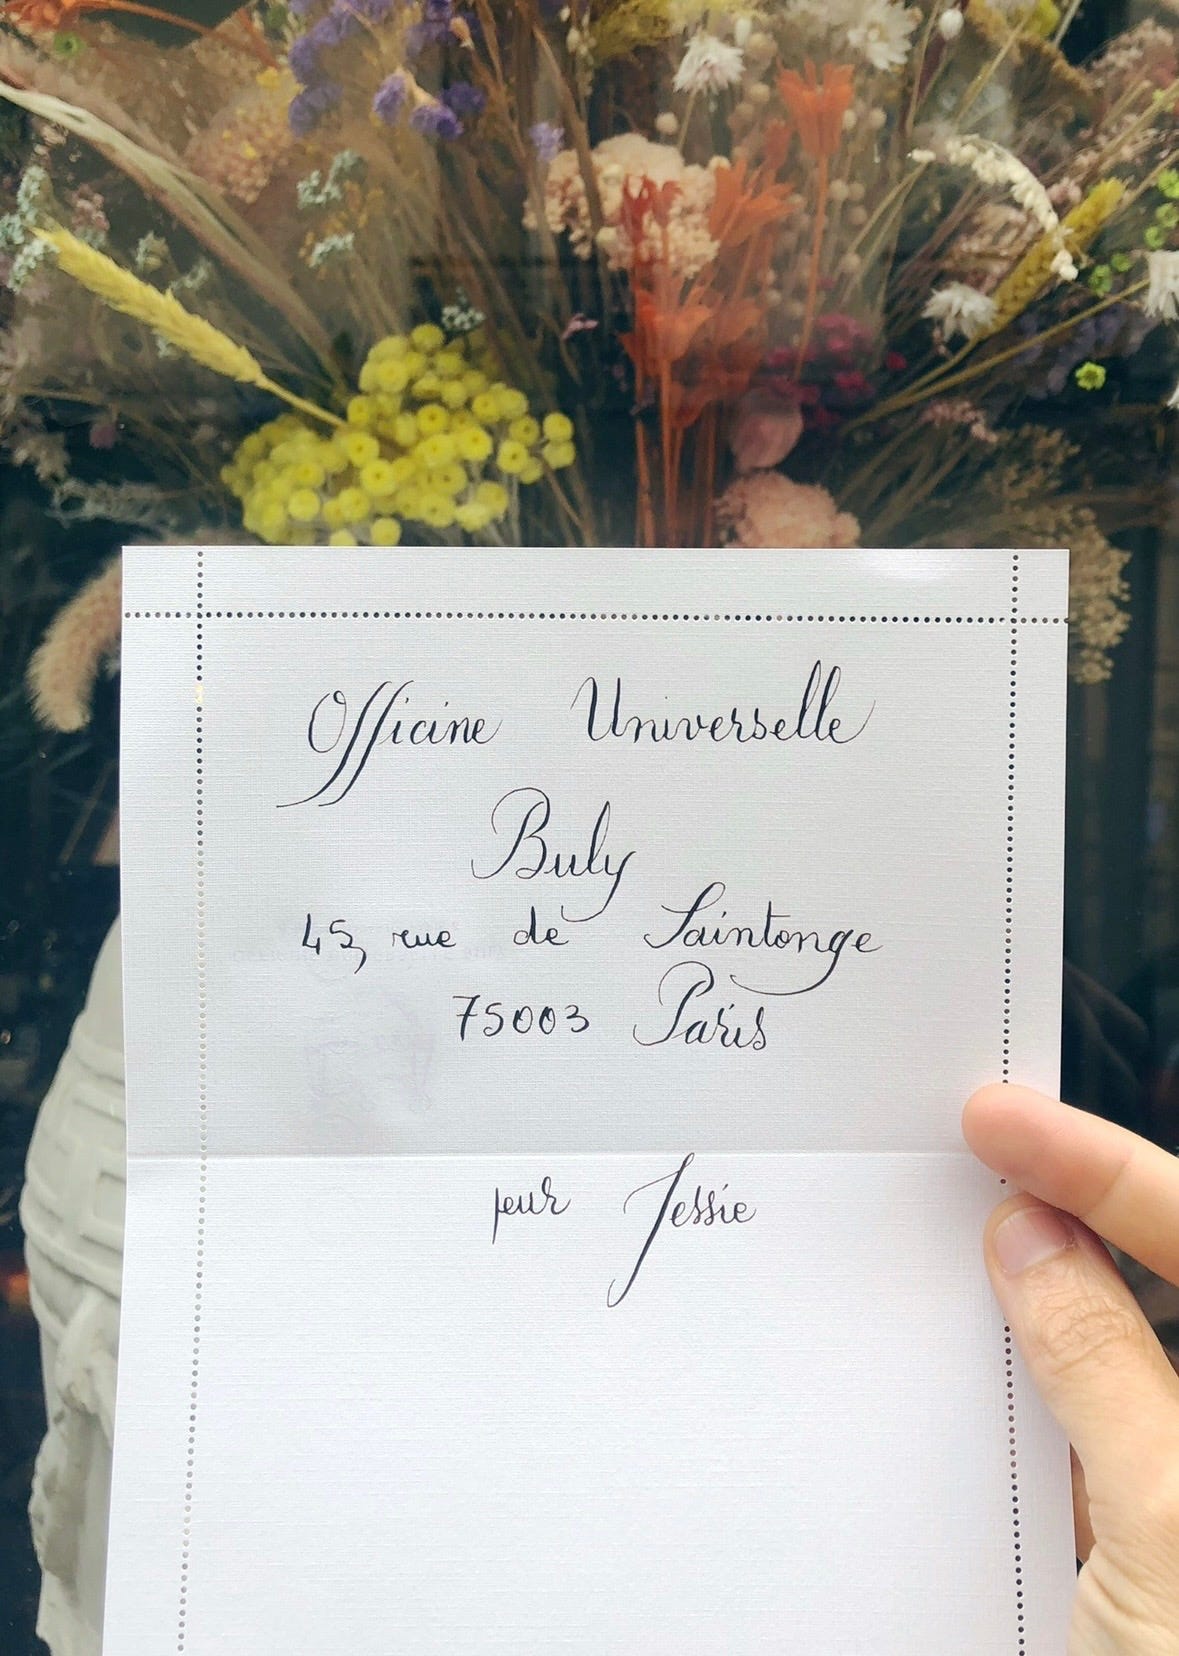 Officine Universelle
Buly
45, rue de Saintonge
75003 Paris
pour Jessie